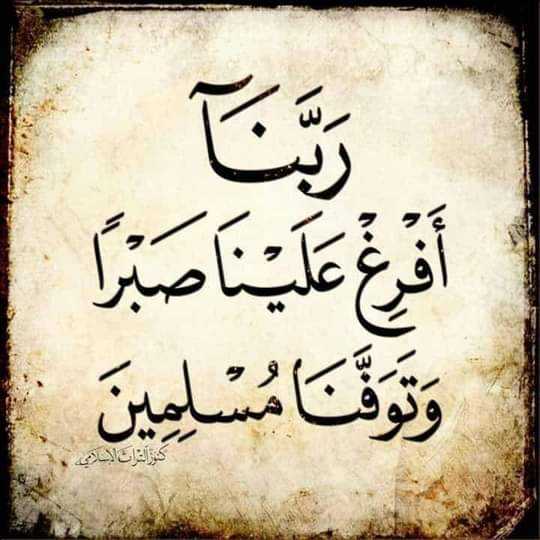 رَبَّنَآ
أَفْرِغْ عَلَيْنَا صَبْرًا
وَتَوَفَّنَا مُسْلِمِينَ
كنوز التراث الإسلامي